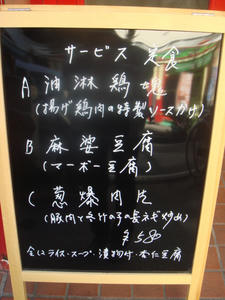 サービス定食
A 油淋鶏塊
(揚げ鶏肉の特製ソースかけ)
B 麻婆豆腐
(マーボー豆腐)
C 葱爆肉片
(豚肉と竹の子の葱炒め)
¥580
全てライス・スープ・漬物付・杏仁豆腐